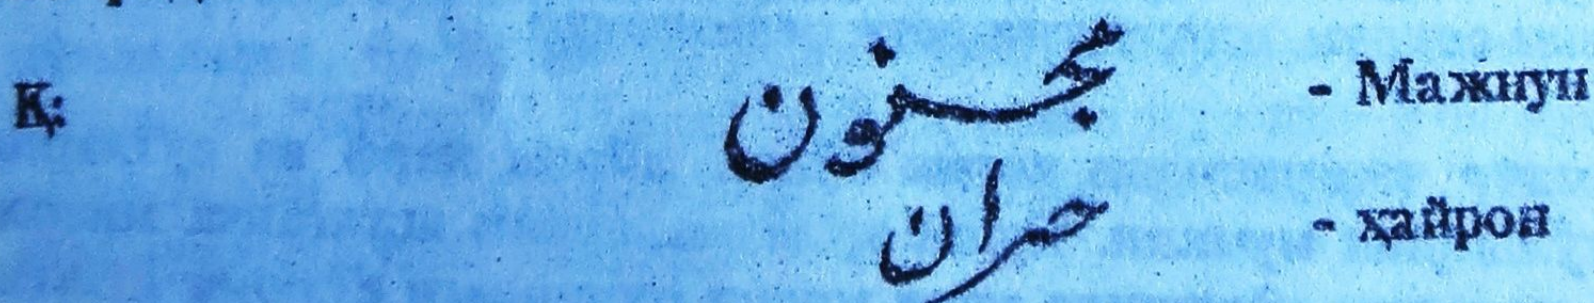 Қ: مجنون - Мажнун
حىران - ҳайрон